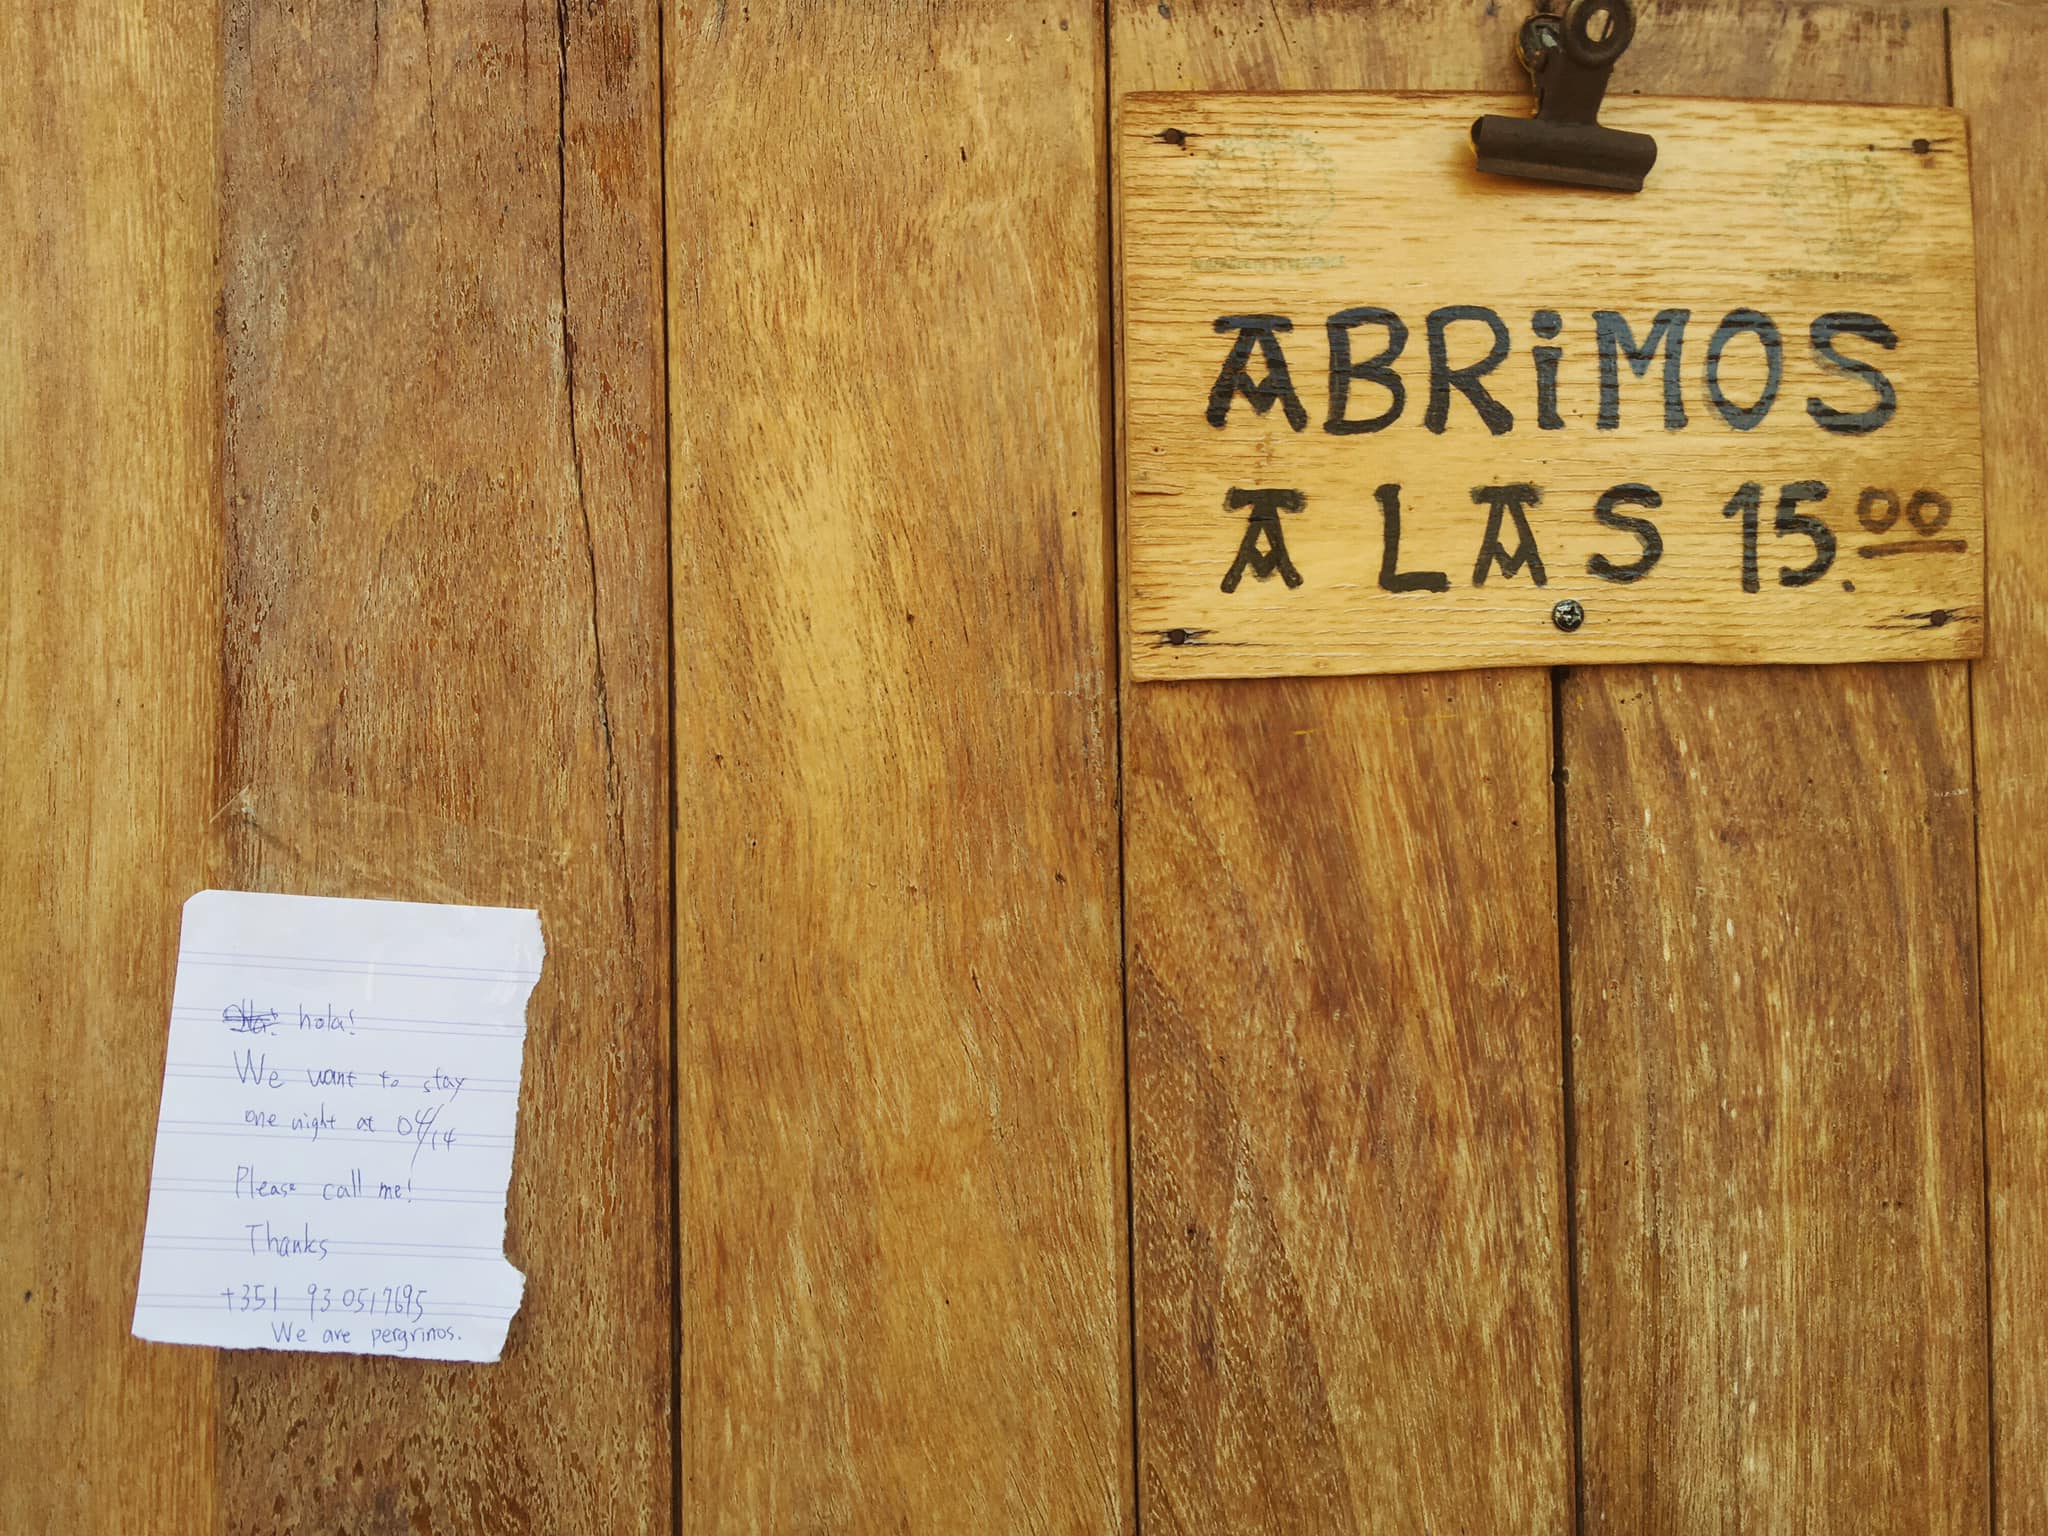 ABRiMOS
A LAS 15.00
hola!
We want to stay
one night at 04/14
Please call me!
Thanks
+351 93 0517695
We are pergrinos.